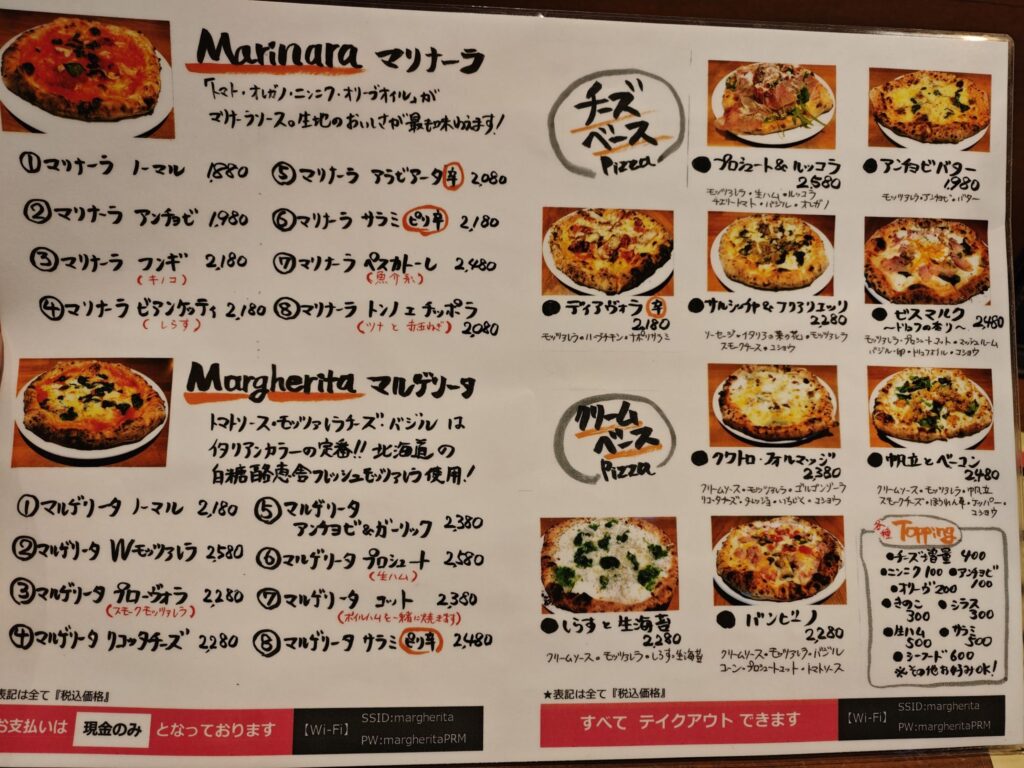 Marinara マリナーラ
「トマト・オレガノ・ニンニク・オリーブオイル」が
マリナーラソース。生地のおいしさが最も味わえます!
①マリナーラ ノーマル 1,880
②マリナーラ アンチョビ 1,980
③マリナーラ フンギ 2,180
(キノコ)
④マリナーラ ビアンケッティ 2,180
(しらす)
⑤マリナーラ アラビアータ 辛 2,080
⑥マリナーラ サラミ ピリ辛 2,180
⑦マリナーラ ペスカトーレ 2,480
(魚介系)
⑧マリナーラ トンノ エ チッポラ
(ツナと赤玉ねぎ) 2,080
Margherita マルゲリータ
トマトソース・モッツァレラチーズ・バジル は
イタリアンカラーの定番!! 北海道の
白糠酪恵舎フレッシュモッツァレラ使用!
①マルゲリータ ノーマル 2,180
②マルゲリータ Wモッツァレラ 2,580
③マルゲリータ プローヴォラ 2,280
(スモークモッツァレラ)
④マルゲリータ リコッタチーズ 2,280
⑤マルゲリータ
アンチョビ&ガーリック 2,380
⑥マルゲリータ プロシュート 2,580
(生ハム)
⑦マルゲリータ コット 2,380
(ボイルハムを一緒に焼きます)
⑧マルゲリータ サラミ ピリ辛 2,480
表記は全て『税込価格』
お支払いは 現金のみ となっております
【Wi-Fi】
SSID:margherita
PW:margheritaPRM
チーズ
ベース
Pizza
●プロシュート&ルッコラ
2,580
モッツァレラ・生ハム・ルッコラ
チェリートマト・バジル・オレガノ
●アンチョビバター
1,980
モッツァレラ・アンチョビ・バター
●ディアヴォラ 辛
2,180
モッツァレラ・ハーブチキン・ナポリサラミ
●サルシッチャ&フリアリエッリ
2,280
ソーセージ・イタリアの菜の花・モッツァレラ
スモークチーズ・コショウ
●ビスマルク
〜トリュフの香り〜 2,480
モッツァレラ・プロシュートコット・マッシュルーム
バジル・卵・トリュフオイル・コショウ
クリーム
ベース
Pizza
●クワトロ・フォルマッジ
2,380
クリームソース・モッツァレラ・ゴルゴンゾーラ
リコッタチーズ・タレッジョ・いちじく・コショウ
●帆立とベーコン
2,480
クリームソース・モッツァレラ・帆立
スモークチーズ・ほうれん草・ケッパー・
コショウ
●しらすと生海苔
2,280
クリームソース・モッツァレラ・しらす・生海苔
●バンビーノ
2,280
クリームソース・モッツァレラ・バジル
コーン・プロシュートコット・トマトソース
各種 Topping
●チーズ増量 400
●ニンニク 100 ●アンチョビ
100
●オリーヴ 200
●きのこ ●シラス
300 300
●生ハム ●サラミ
500 500
●シーフード 600
※その他お好みOK!
★表記は全て『税込価格』
すべて テイクアウト できます
【Wi-Fi】
SSID:margherita
PW:margheritaPRM